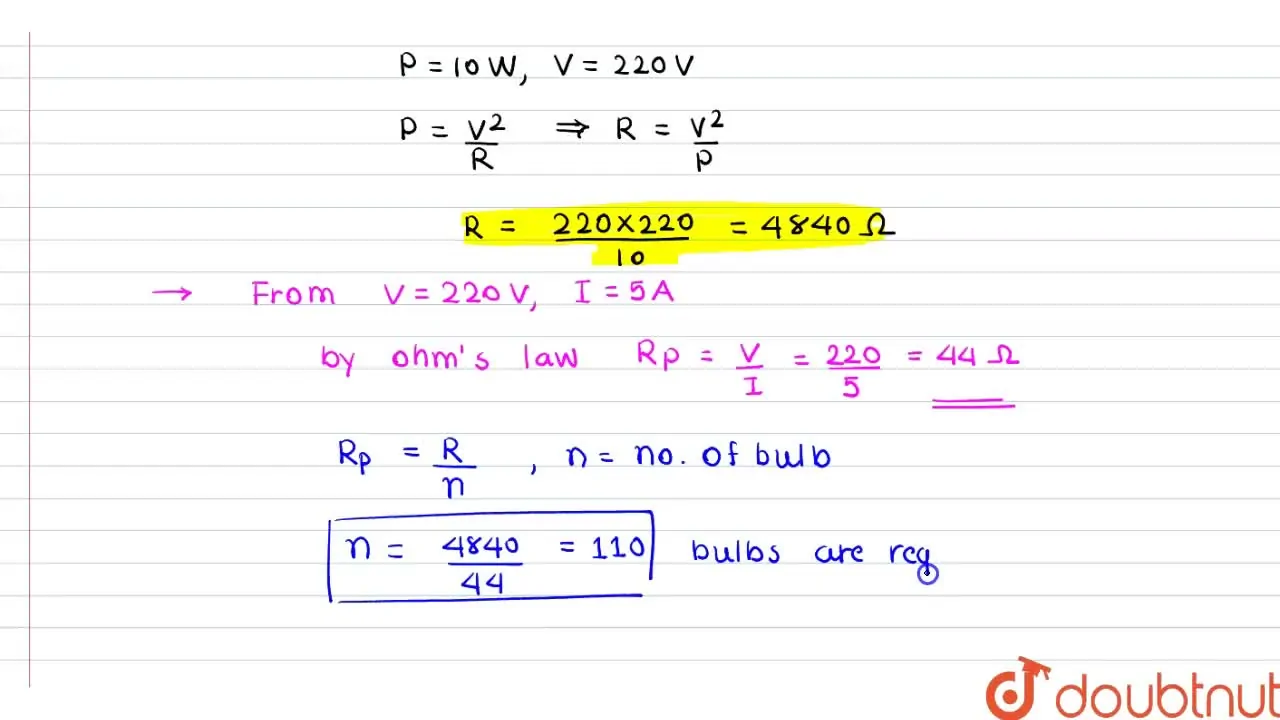 P = 10 W, V = 220 V
P = V²/R ⇒ R = V²/P
R = 220×220/10 = 4840 Ω
→ From V = 220 V, I = 5 A
by ohm's law Rp = V/I = 220/5 = 44 Ω
Rp = R/n , n = no. of bulb
n = 4840/44 = 110 bulbs are req
doubtnut